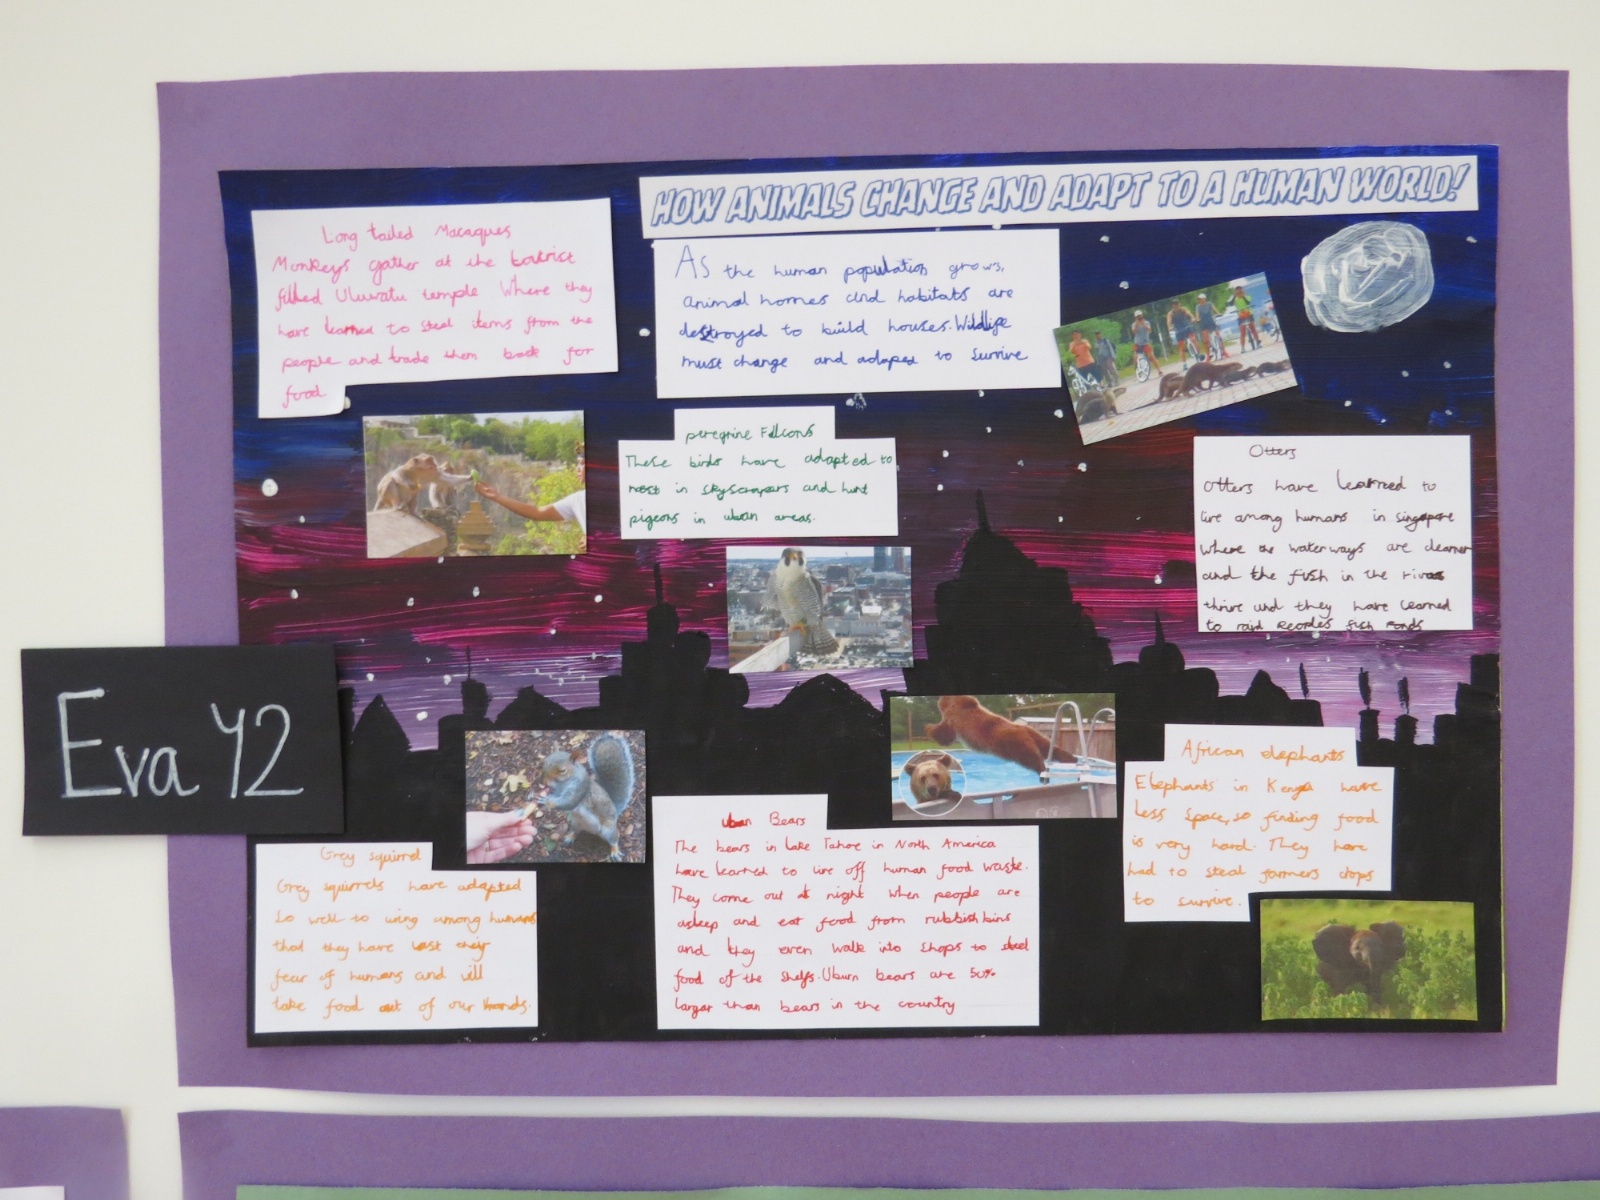 HOW ANIMALS CHANGE AND ADAPT TO A HUMAN WORLD!
Long tailed Macaques
Monkeys gather at the tourist
filled Uluwatu temple Where they
have learned to steal items from the
people and trade them back for
food
As the human population grows,
animal homes and habitats are
destroyed to build houses. Wildlife
must change and adapet to survive
peregrine Fallcons
These birds have adapted to
nest in skyscrapers and hunt
pigeons in uban areas.
Otters
Otters have learned to
live among humans in singapore
where the waterways are cleaner
and the fish in the rivers
thrive and they have learned
to raid Peoples fish ponds
Eva Y2
Grey squirrel
Grey squirrels have adapted
so well to living among humans
that they have lost their
fear of humans and will
take food out of our hands.
uban Bears
The bears in lake Tahoe in North America
have learned to live off human food waste.
They come out at night when people are
asleep and eat food from rubbish bins
and they even walk into shops to steal
food of the shelfs. Uburn bears are 50%
larger than bears in the country
African elephants
Elephants in Kenya have
less space, so finding food
is very hard. They have
had to steal farmers crops
to survive.